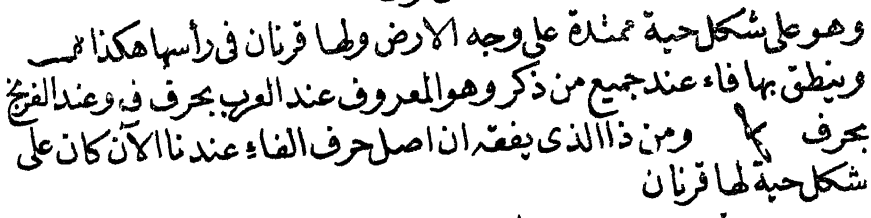 وهو على شكل حية ممتدة على وجه الارض ولها قرنان فى رأسها هكذا
وينطق بها فاء عند جميع من ذكر وهو المعروف عند العرب بحرف ف وعند الفرنج
بحرف ومن ذا الذى يفقه ان اصل حرف الفاء عندنا الآن كان على
شكل حية لها قرنان